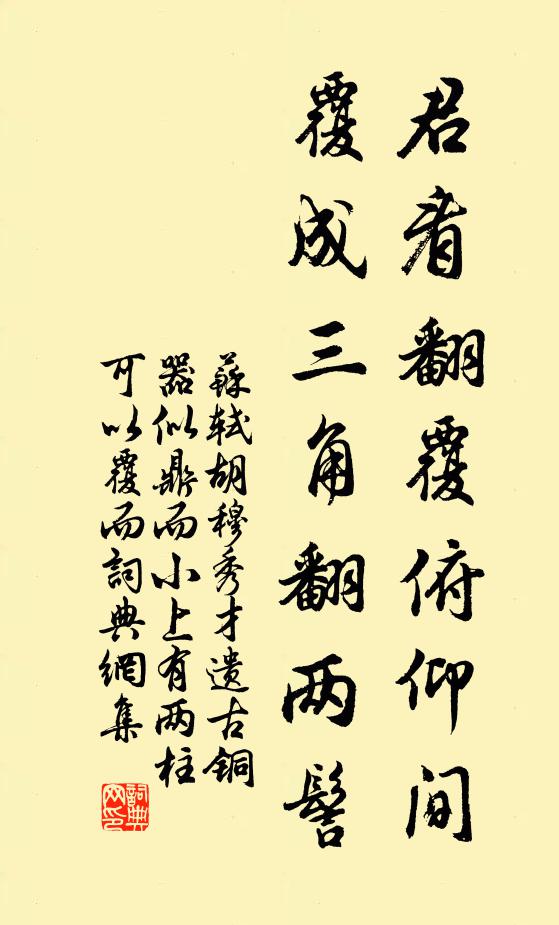 君看翻覆俯仰間
覆成三角翻两髻
蘇軾胡穆秀才遗古銅
器似鼎而小上有两柱
可以覆而詞典網集
詞典网印